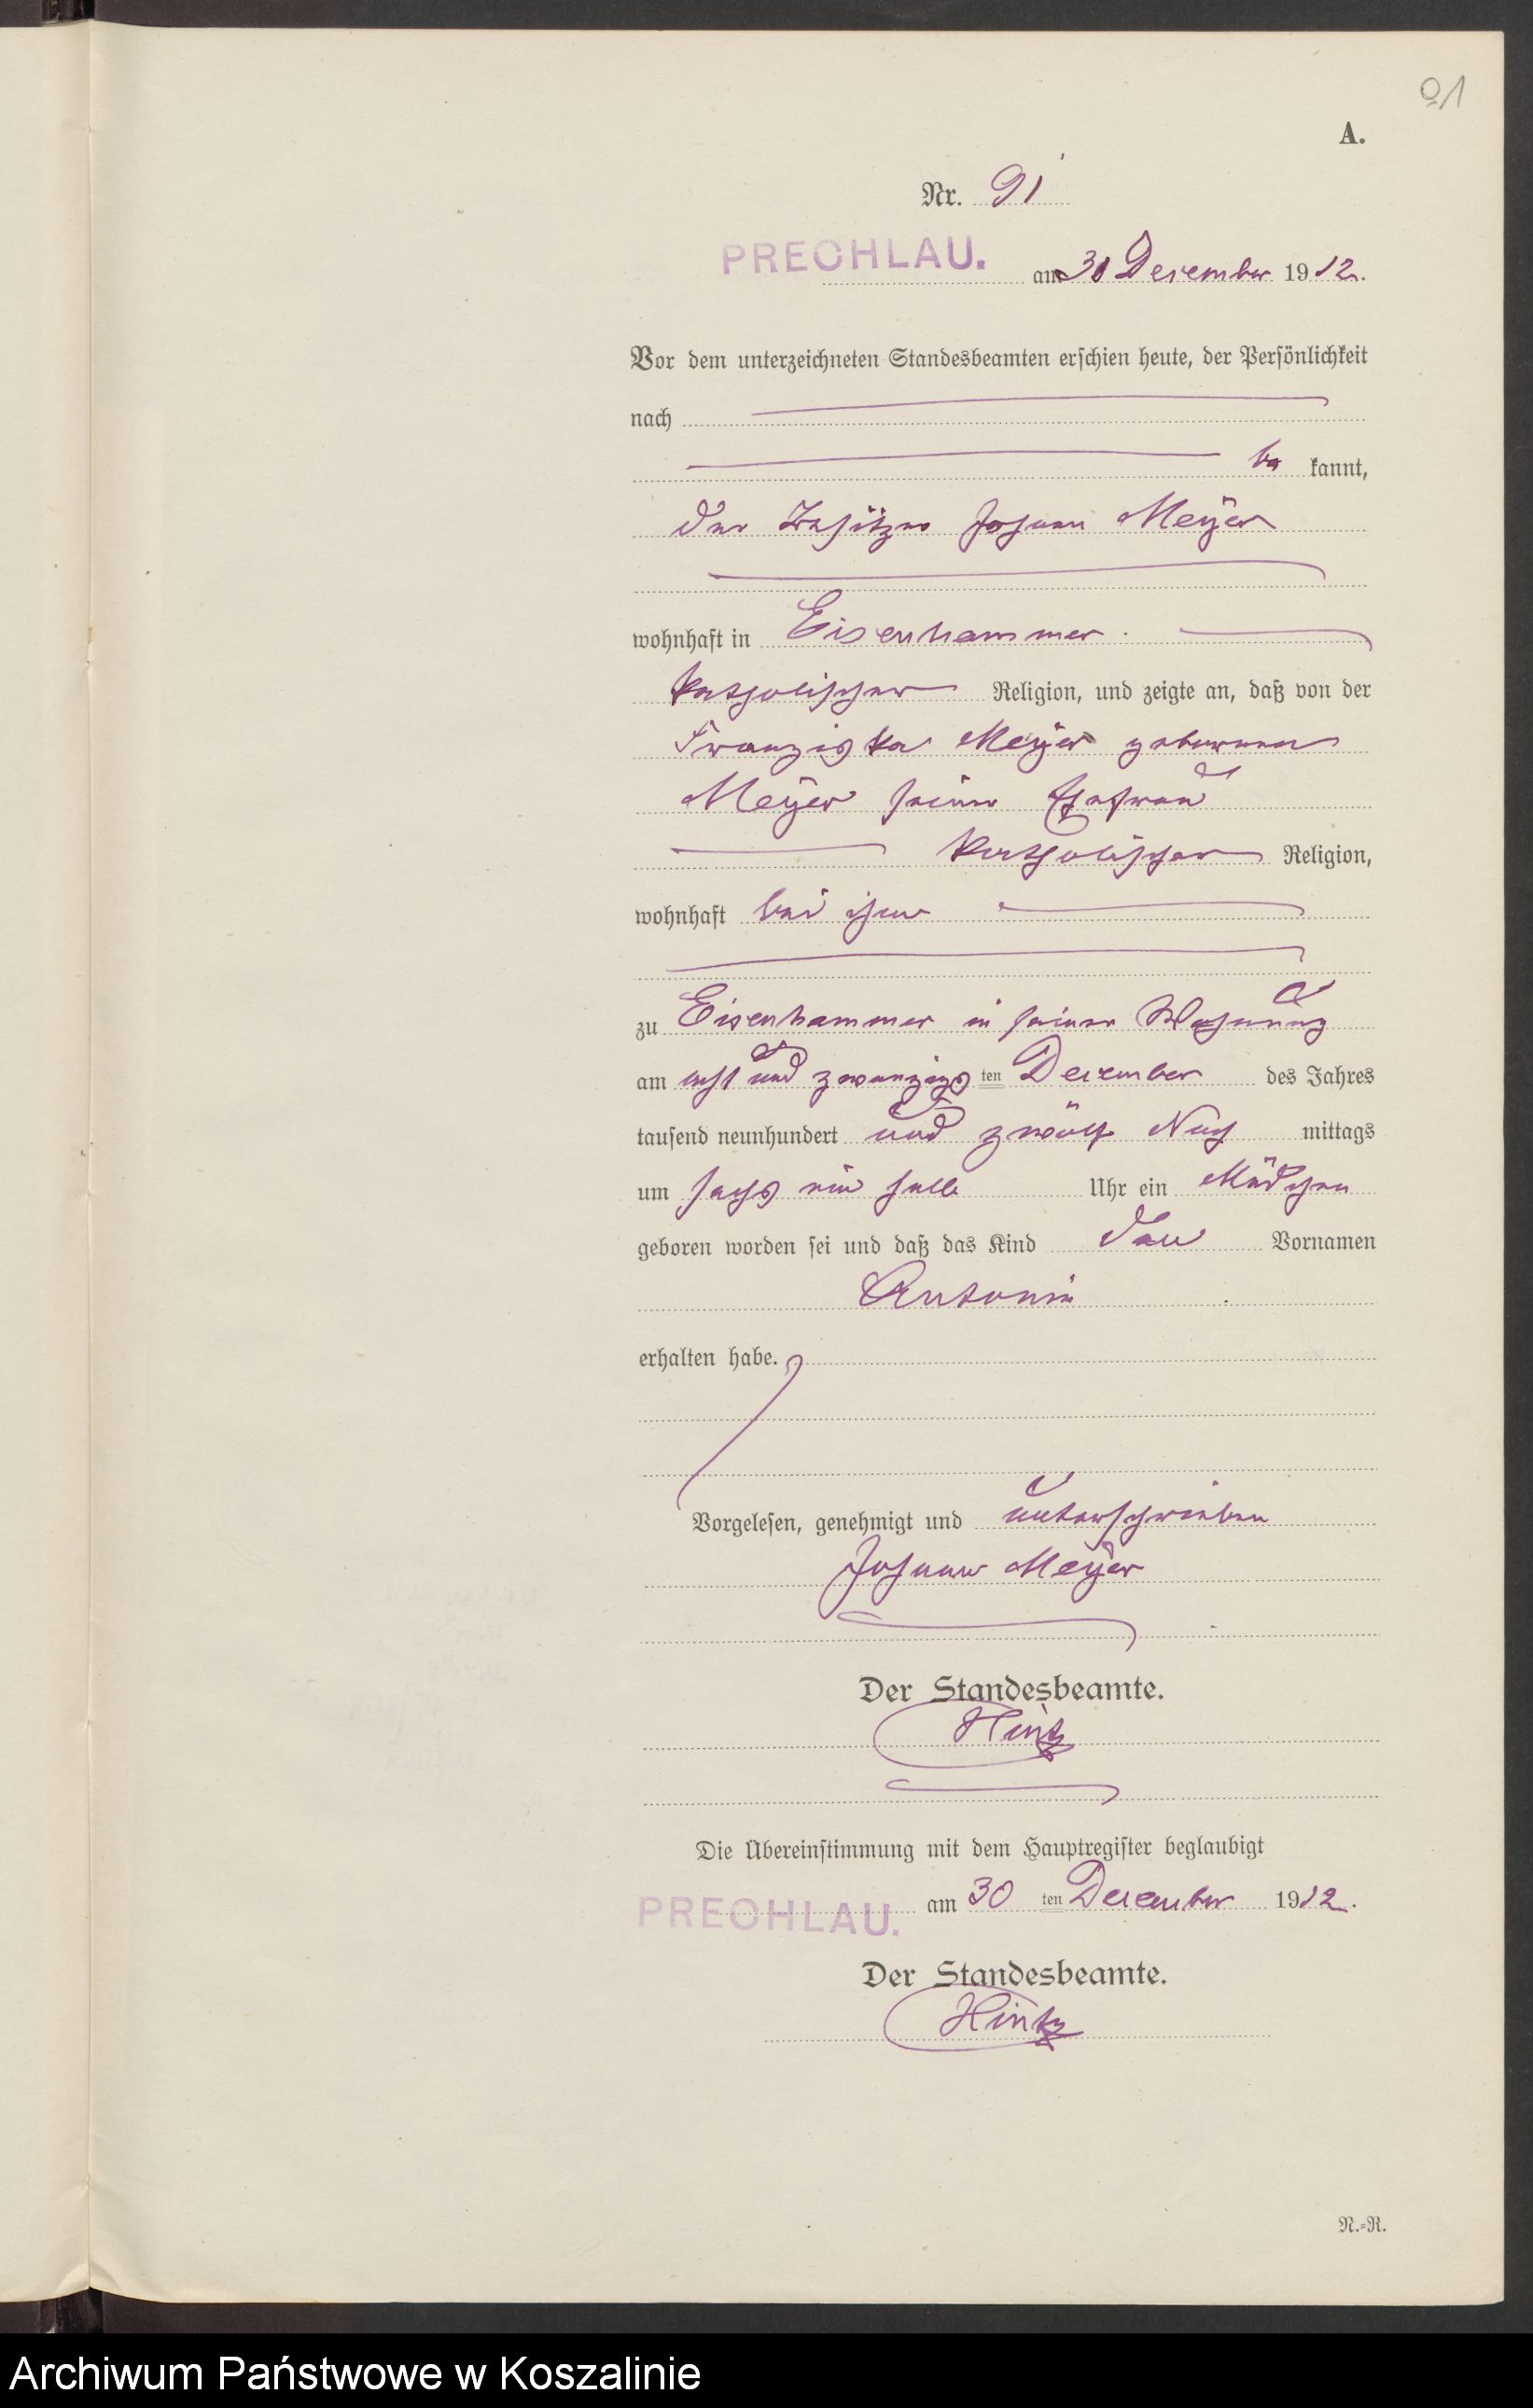 91
A.
Nr. 91
PRECHLAU. am 30 Dezember 1912.
Vor dem unterzeichneten Standesbeamten erschien heute, der Persönlichkeit
nach
be kannt,
der Besitzer Johann Meyer
wohnhaft in Eisenhammer.
katholischer Religion, und zeigte an, daß von der
Franziska Meyer geborenen
Meyer seiner Ehefrau
katholischer Religion,
wohnhaft bei ihm
zu Eisenhammer in seiner Wohnung
am acht und zwanzigs ten Dezember des Jahres
tausend neunhundert und zwölf Nach mittags
um sechs ein halb Uhr ein Mädchen
geboren worden sei und daß das Kind den Vornamen
Antonie
erhalten habe.
Vorgelesen, genehmigt und unterschrieben
Johann Meyer
Der Standesbeamte.
Hintz
Die Übereinstimmung mit dem Hauptregister beglaubigt
PRECHLAU. am 30 ten Dezember 1912.
Der Standesbeamte.
Hintz
N.=R.
Archiwum Państwowe w Koszalinie